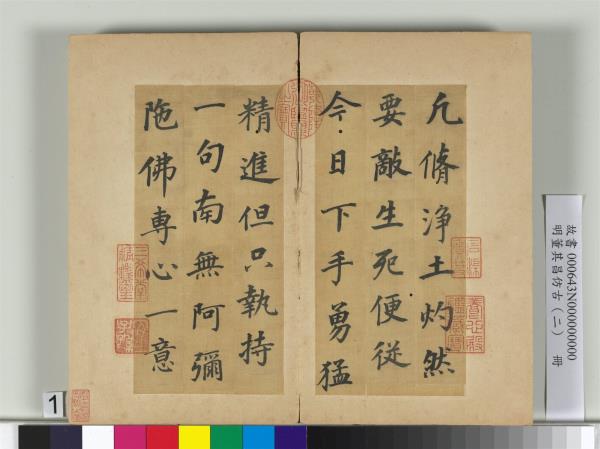 凢脩淨土灼然
要敵生死便從
今日下手勇猛
精進但只執持
一句南無阿彌
陁佛專心一意
故書 000643N000000000
明董其昌仿古（二） 冊
1